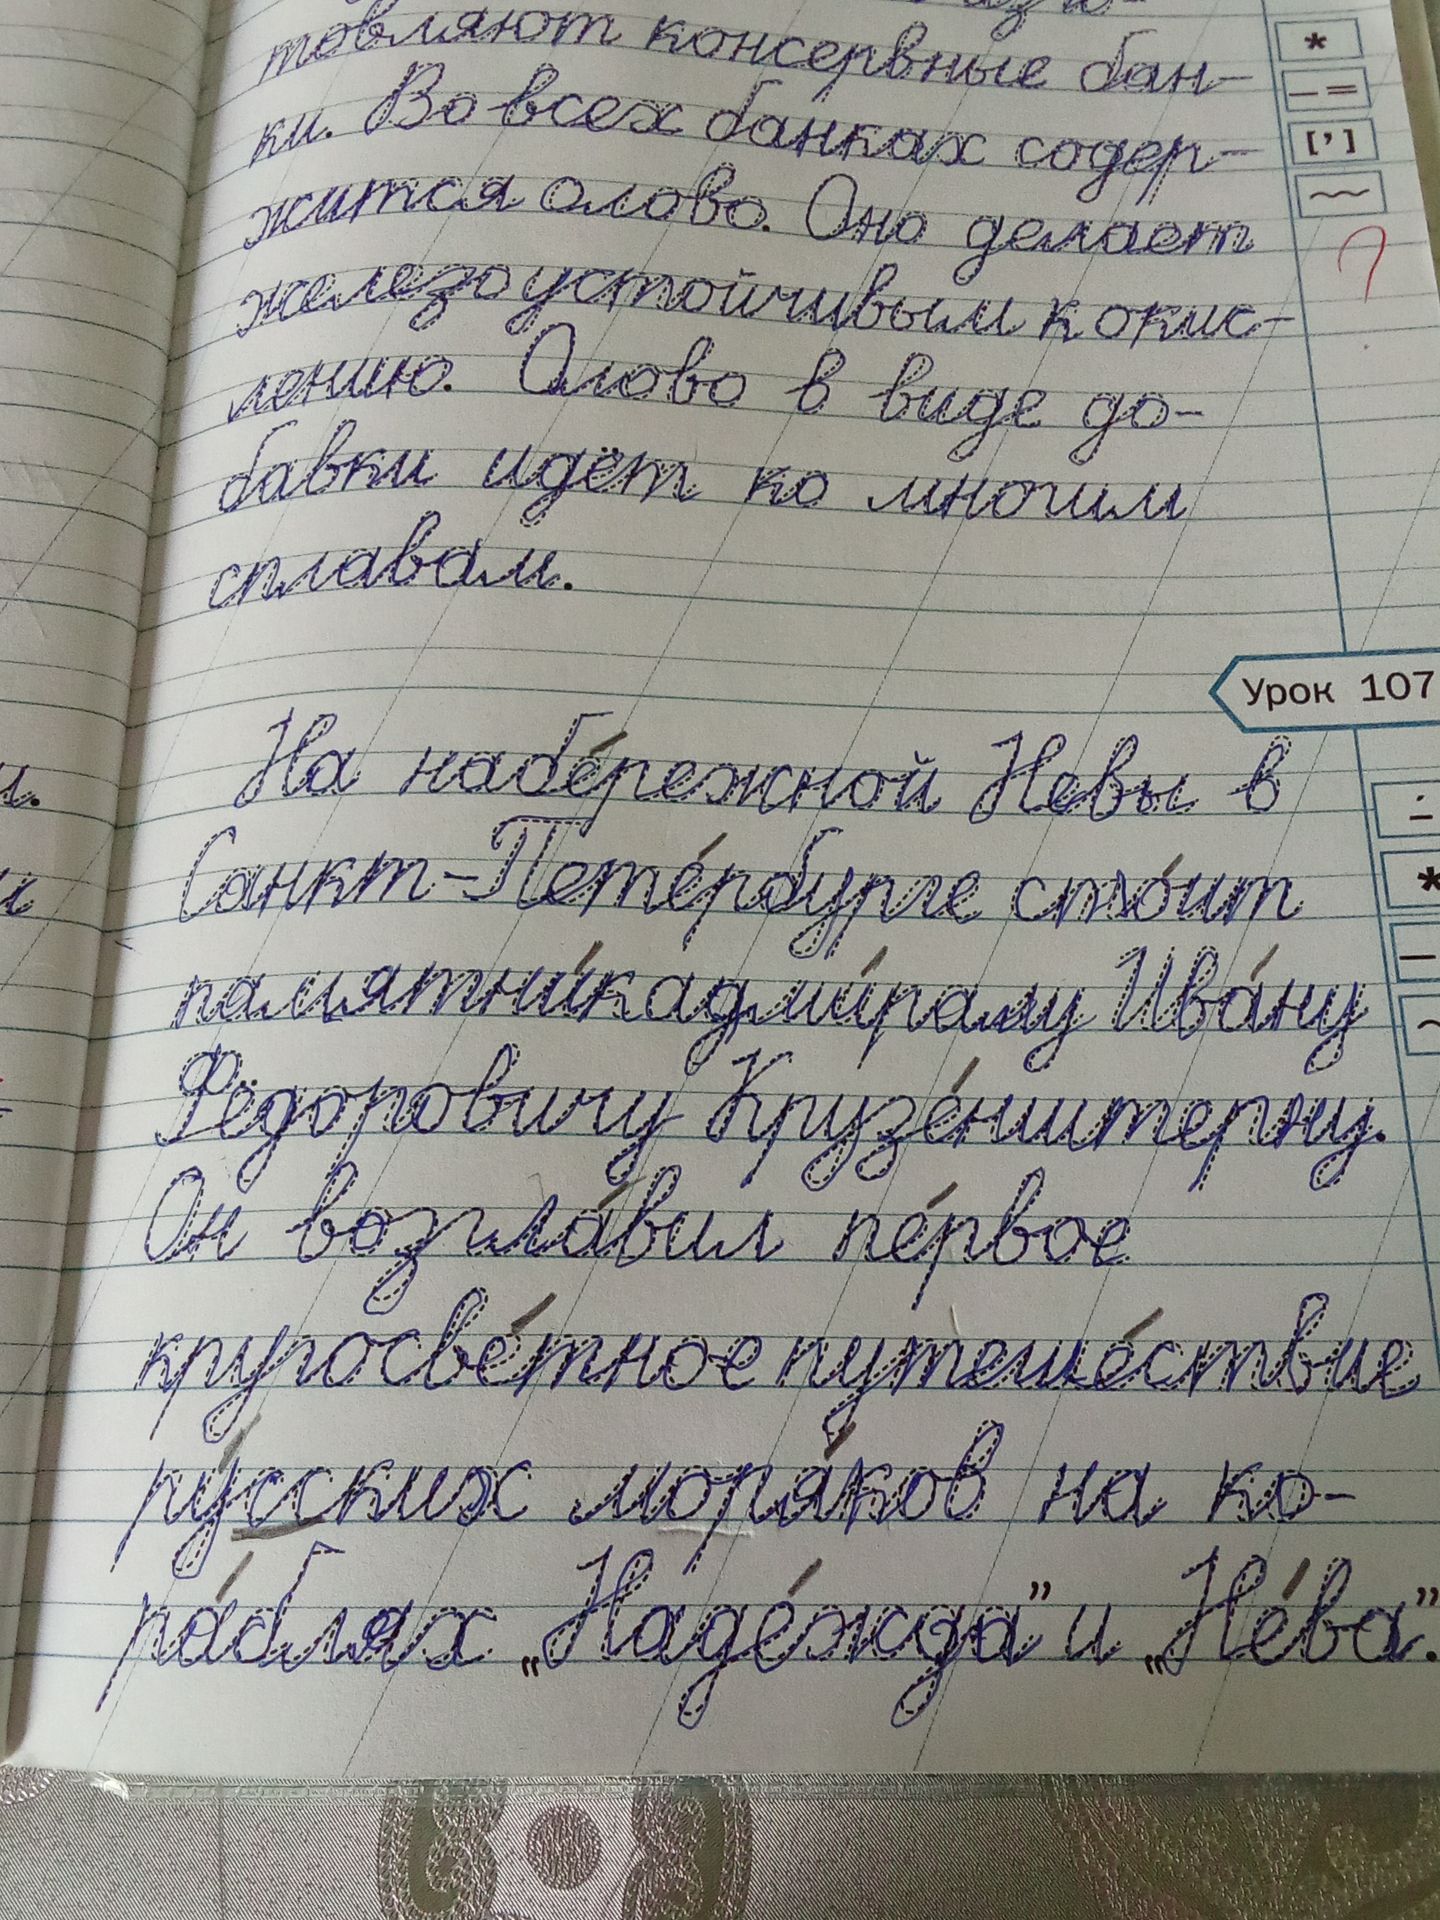 товляют консервные бан-
ки. Во всех банках содер-
жится олово. Оно делает
железо устойчивым к окис-
лению. Олово в виде до-
бавки идёт ко многим
сплавам.
Урок 107
На набе́режной Невы в
Санкт-Пете́рбурге сто́ит
памятни́к адми́ралу Ива́ну
Фёдоровичу Крузе́нштерну.
Он возгла́вил пе́рвое
кругосве́тное путеше́ствие
ру́сских моря́ков на ко-
ра́блях „Наде́жда” и „Не́ва”.